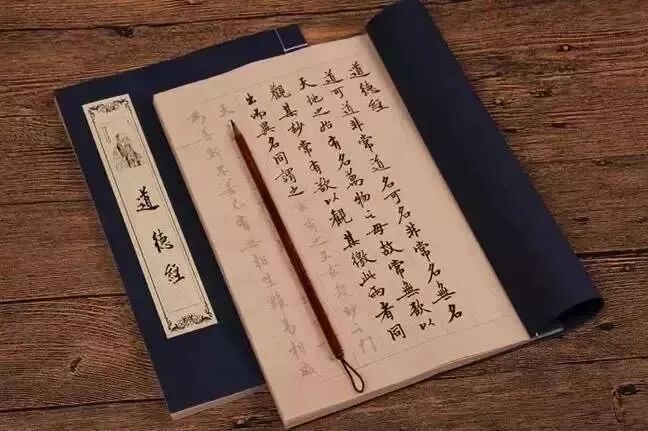 道德經
道可道非常道名可名非常名無名
天地之始有名萬物之母故常無欲以
觀其妙常有欲以觀其徼此兩者同
出而異名同謂之玄玄之又玄眾妙之門
天
斯不善已有無相生難易相成
道德經